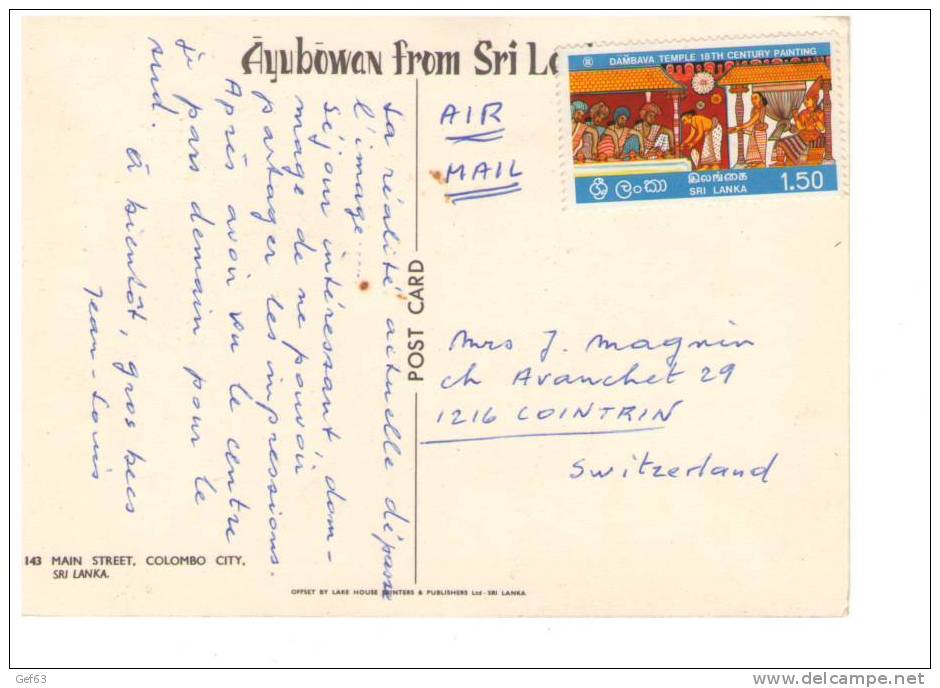 Āyubōwan from Sri L
DAMBAVA TEMPLE 18TH CENTURY PAINTING
ශ්‍රී ලංකා
இலங்கை
SRI LANKA
1.50
AIR
MAIL
La réalité actuelle dépasse
l'image....
Séjour intéressant, dom-
mage de ne pouvoir
partager les impressions.
Après avoir vu le centre
je pars demain pour le
sud.
à bientôt, gros becs
Jean-Louis
POST CARD
Mrs J. Magnin
ch Avanchet 29
1216 COINTRIN
Switzerland
143 MAIN STREET, COLOMBO CITY,
SRI LANKA.
OFFSET BY LAKE HOUSE PRINTERS & PUBLISHERS Ltd - SRI LANKA
Gef63
delcampe.net